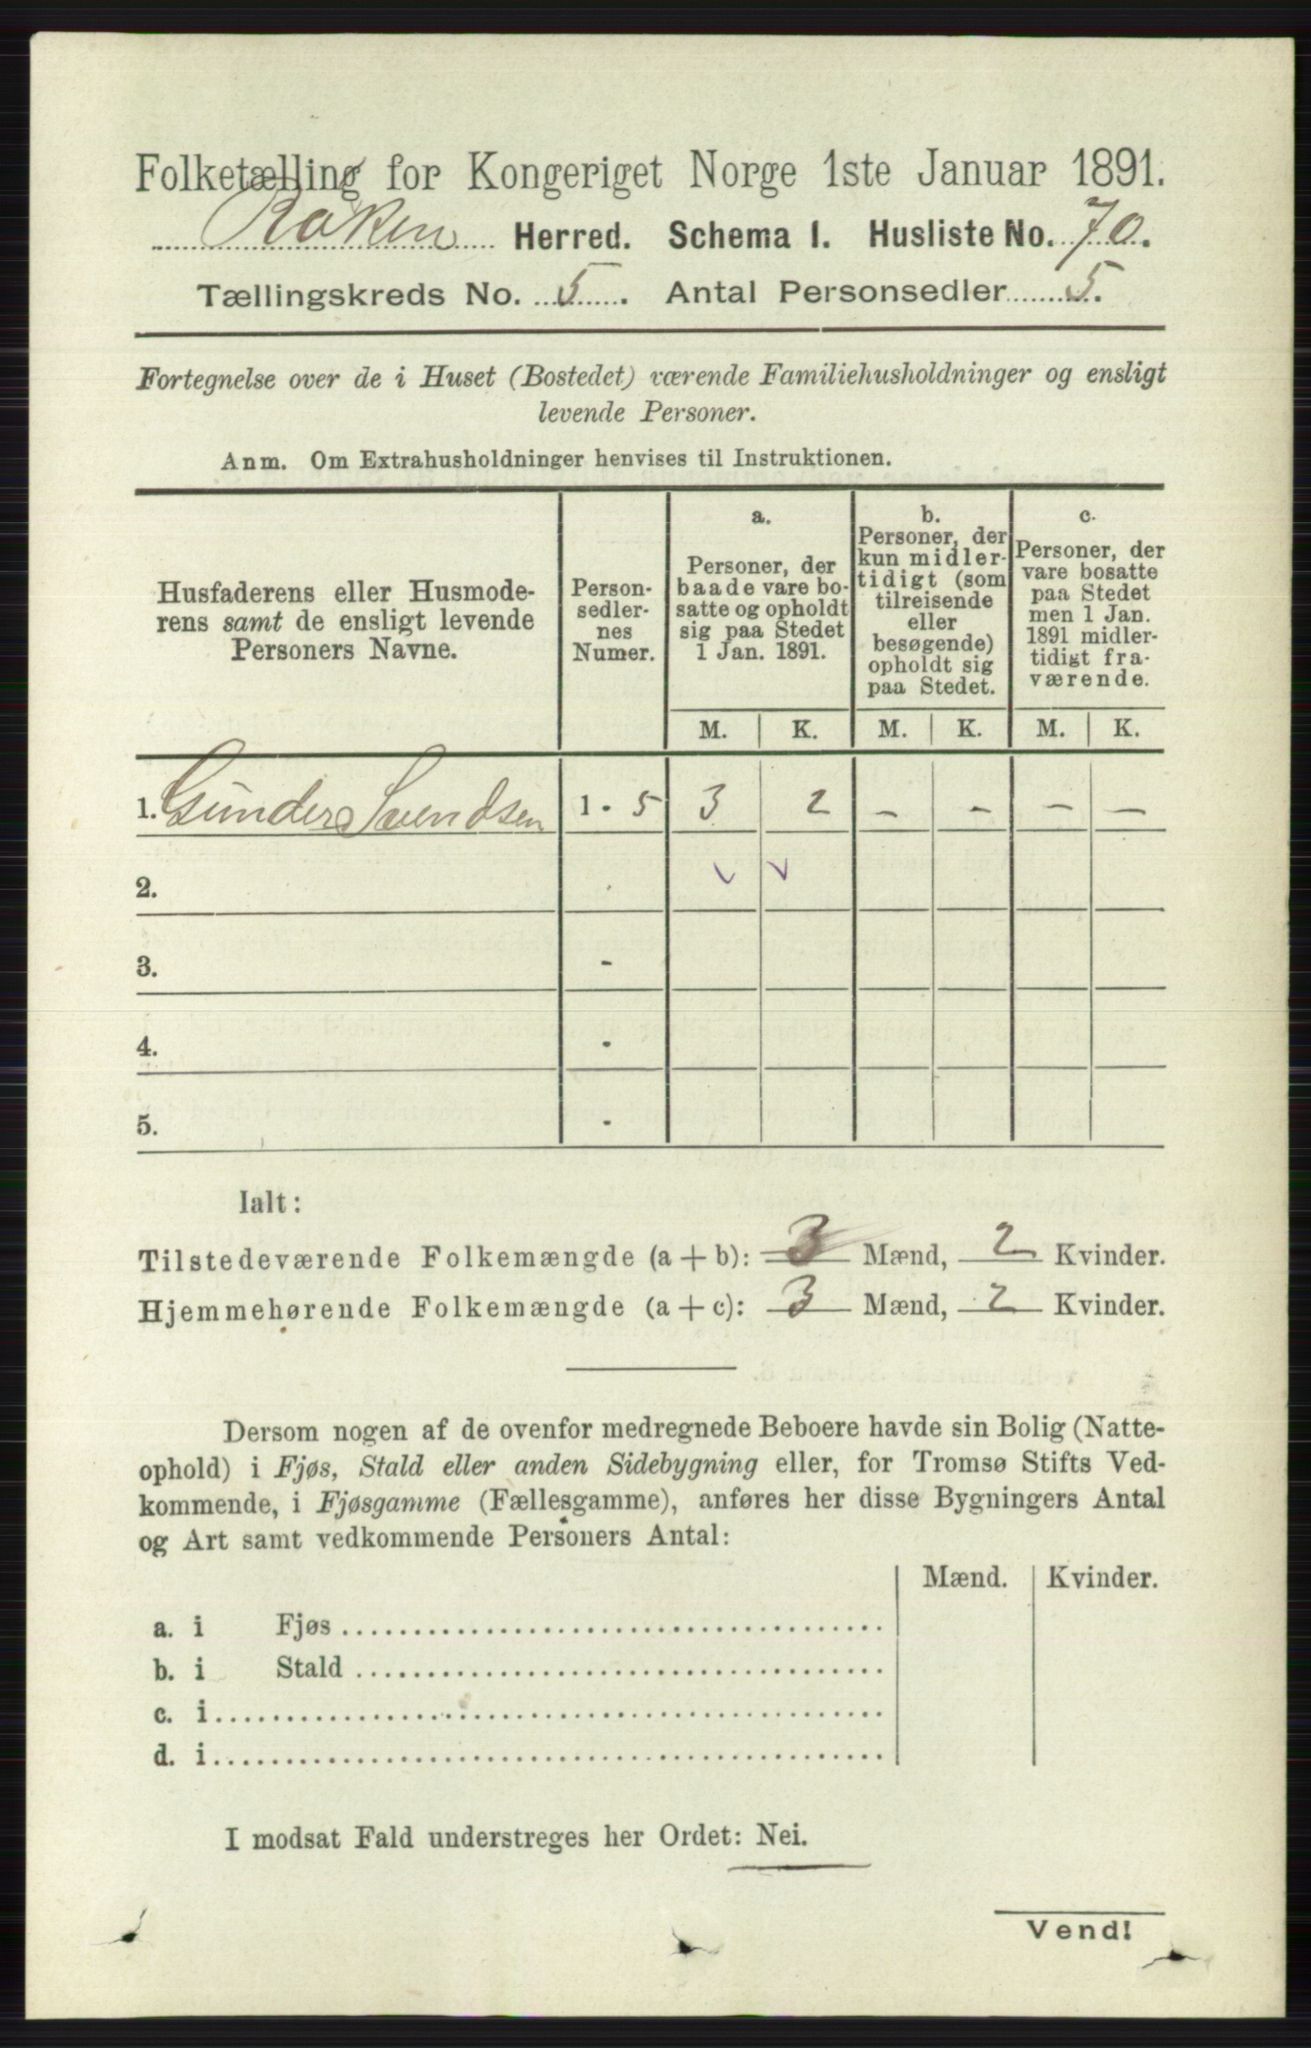 Folketælling for Kongeriget Norge 1ste Januar 1891.
Røken Herred. Schema I. Husliste No. 70.
Tællingskreds No. 5. Antal Personsedler 5.
Fortegnelse over de i Huset (Bostedet) værende Familiehusholdninger og ensligt
levende Personer.
Anm. Om Extrahusholdninger henvises til Instruktionen.
Husfaderens eller Husmode-
rens samt de ensligt levende
Personers Navne.
Person-
sedler-
nes
Numer.
a.
Personer, der
baade vare bo-
satte og opholdt
sig paa Stedet
1 Jan. 1891.
b.
Personer, der
kun midler-
tidigt (som
tilreisende
eller
besøgende)
opholdt sig
paa Stedet.
c.
Personer, der
vare bosatte
paa Stedet
men 1 Jan.
1891 midler-
tidigt fra-
værende.
M. K. M. K. M. K.
1. Gunder Svendsen 1 - 5 3 2 - - - -
2.
3. -
4. -
5. -
Ialt:
Tilstedeværende Folkemængde (a + b): 3 Mænd, 2 Kvinder.
Hjemmehørende Folkemængde (a + c): 3 Mænd, 2 Kvinder.
Dersom nogen af de ovenfor medregnede Beboere havde sin Bolig (Natte-
ophold) i Fjøs, Stald eller anden Sidebygning eller, for Tromsø Stifts Ved-
kommende, i Fjøsgamme (Fællesgamme), anføres her disse Bygningers Antal
og Art samt vedkommende Personers Antal:
Mænd. Kvinder.
a. i Fjøs
b. i Stald
c. i
d. i
I modsat Fald understreges her Ordet: Nei.
Vend!